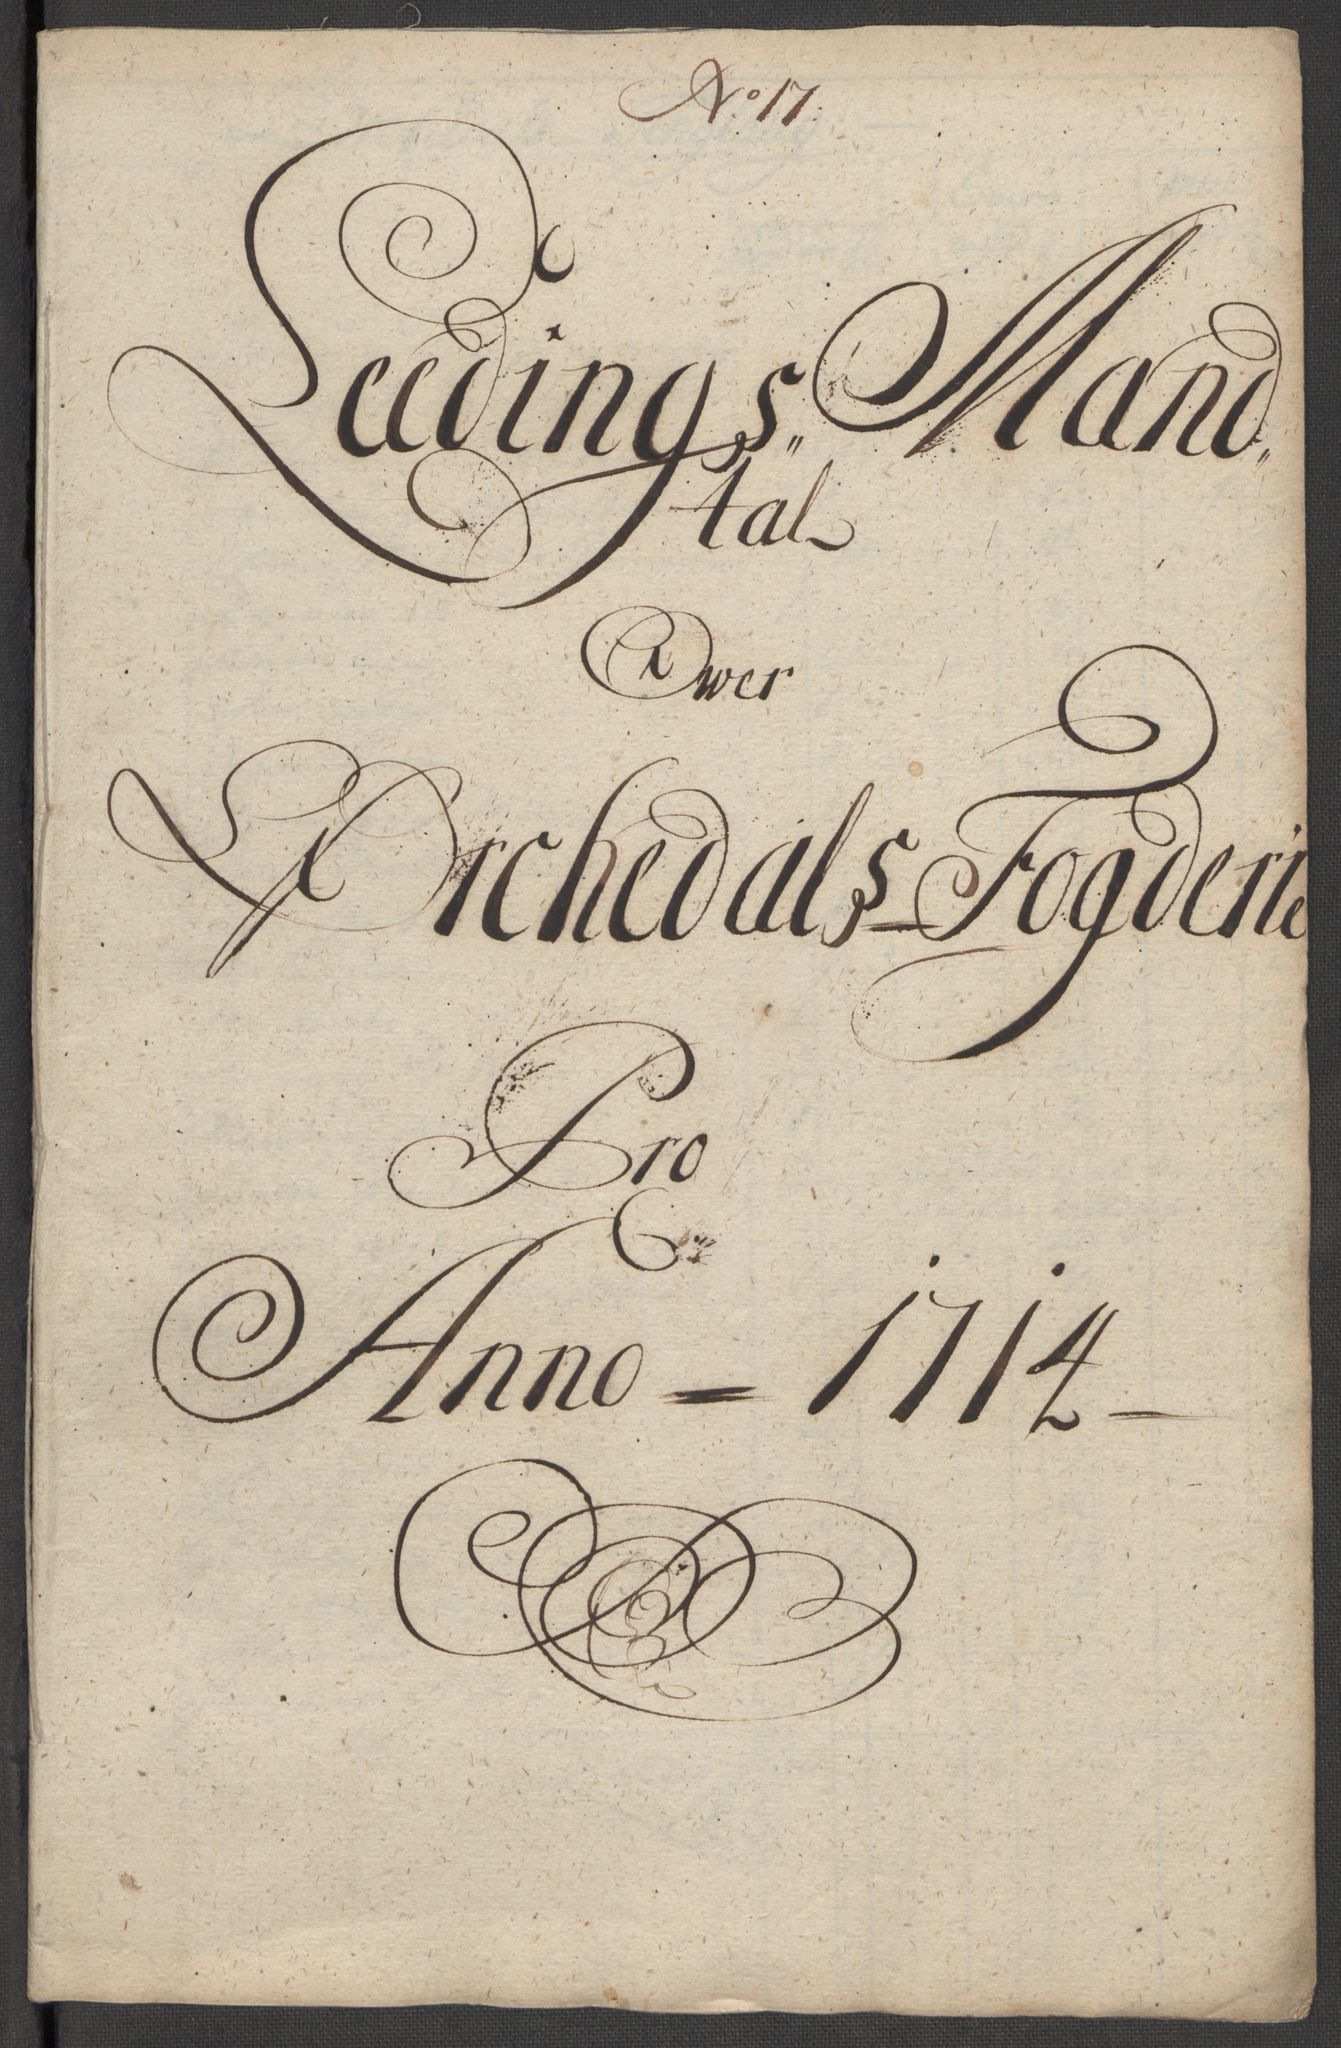 No 17.
Leedings„ Mand„
tal
Ower
Orchedals Fogderie
Pro
Anno = 1714 –